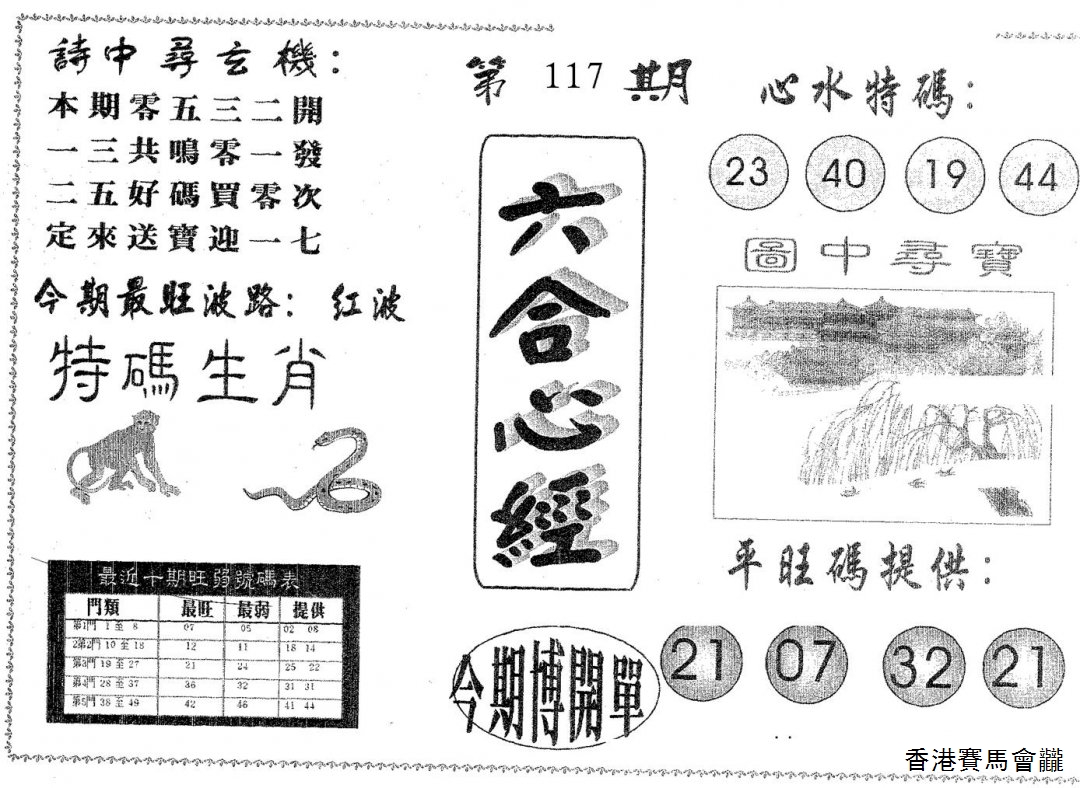 詩中尋玄機：
本期零五三二開
一三共鳴零一發
二五好碼買零次
定來送寶迎一七
今期最旺波路：红波
特碼生肖
最近十期旺弱號碼表
門類 最旺 最弱 提供
第1門 1 至 8 07 05 02 08
2第2門 10 至 18 12 11 18 14
第3門 19 至 27 21 24 25 22
第4門 28 至 37 36 32 31 31
第5門 38 至 49 42 46 41 44
第 117 期
六合心經
今期博開單
心水特碼：
23 40 19 44
圖中尋寶
平旺碼提供：
21 07 32 21
香港賽馬會